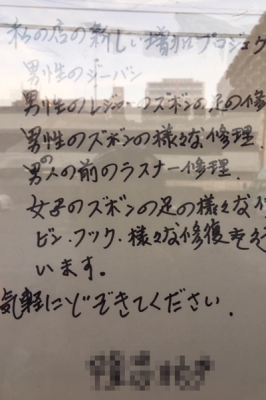 私の店の新しい増加プロジェク
男性のジーパン
男性のレジャーのズボンの足の修
男性のズボンの様々な修理.
男の人の前のラスナー修理.
女子のズボンの足の様々な
ピン.フック.様々な修復を
います。
気軽にどぞきてください.